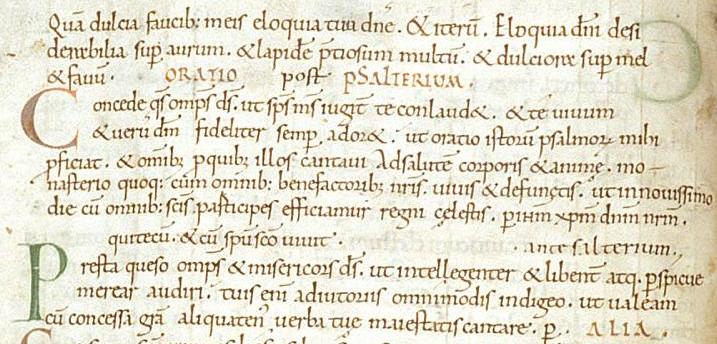 Quā dulcia faucib; meis eloquia tua dnē. & iterū. Eloquia dn̄i desi
derabilia sup̄ aurum. & lapidē p̄tiosum multū. & dulciora sup̄ mel
& fauū. ORATIO post PSALTERIUM
Concede qs̄ omp̄s ds̄. ut sp̄s nr̄s iugit̄ te conlaud&. & te uiuum
& uerū dn̄m fideliter semp̄ ador&. ut oratio istorū psalmorū mihi
p̄ficiat. & omib; p̄ quib; illos cantaui Ad salutē corporis & animę. mo-
nasterio quoq; cum omnib; benefactorib; nr̄is. uiuis & defunctis. ut in nouissimo
die cū omnib; sc̄is participes efficiamur regni cęlestis. p̄ ihm̄ xp̄m dn̄m nr̄m.
qui tecū. & cū sp̄u sc̄o uiuit. ante salterium.
Presta queso omp̄s & misericors ds̄. ut intellegenter & libent̄ atq. p̄spicue
merear audiri. tuis enī adiutoriis omnimodis indigeo. ut ualeam
cū concessa gr̄a aliquaten; uerba tuę maiestatis cantare. p̄. ALIA.